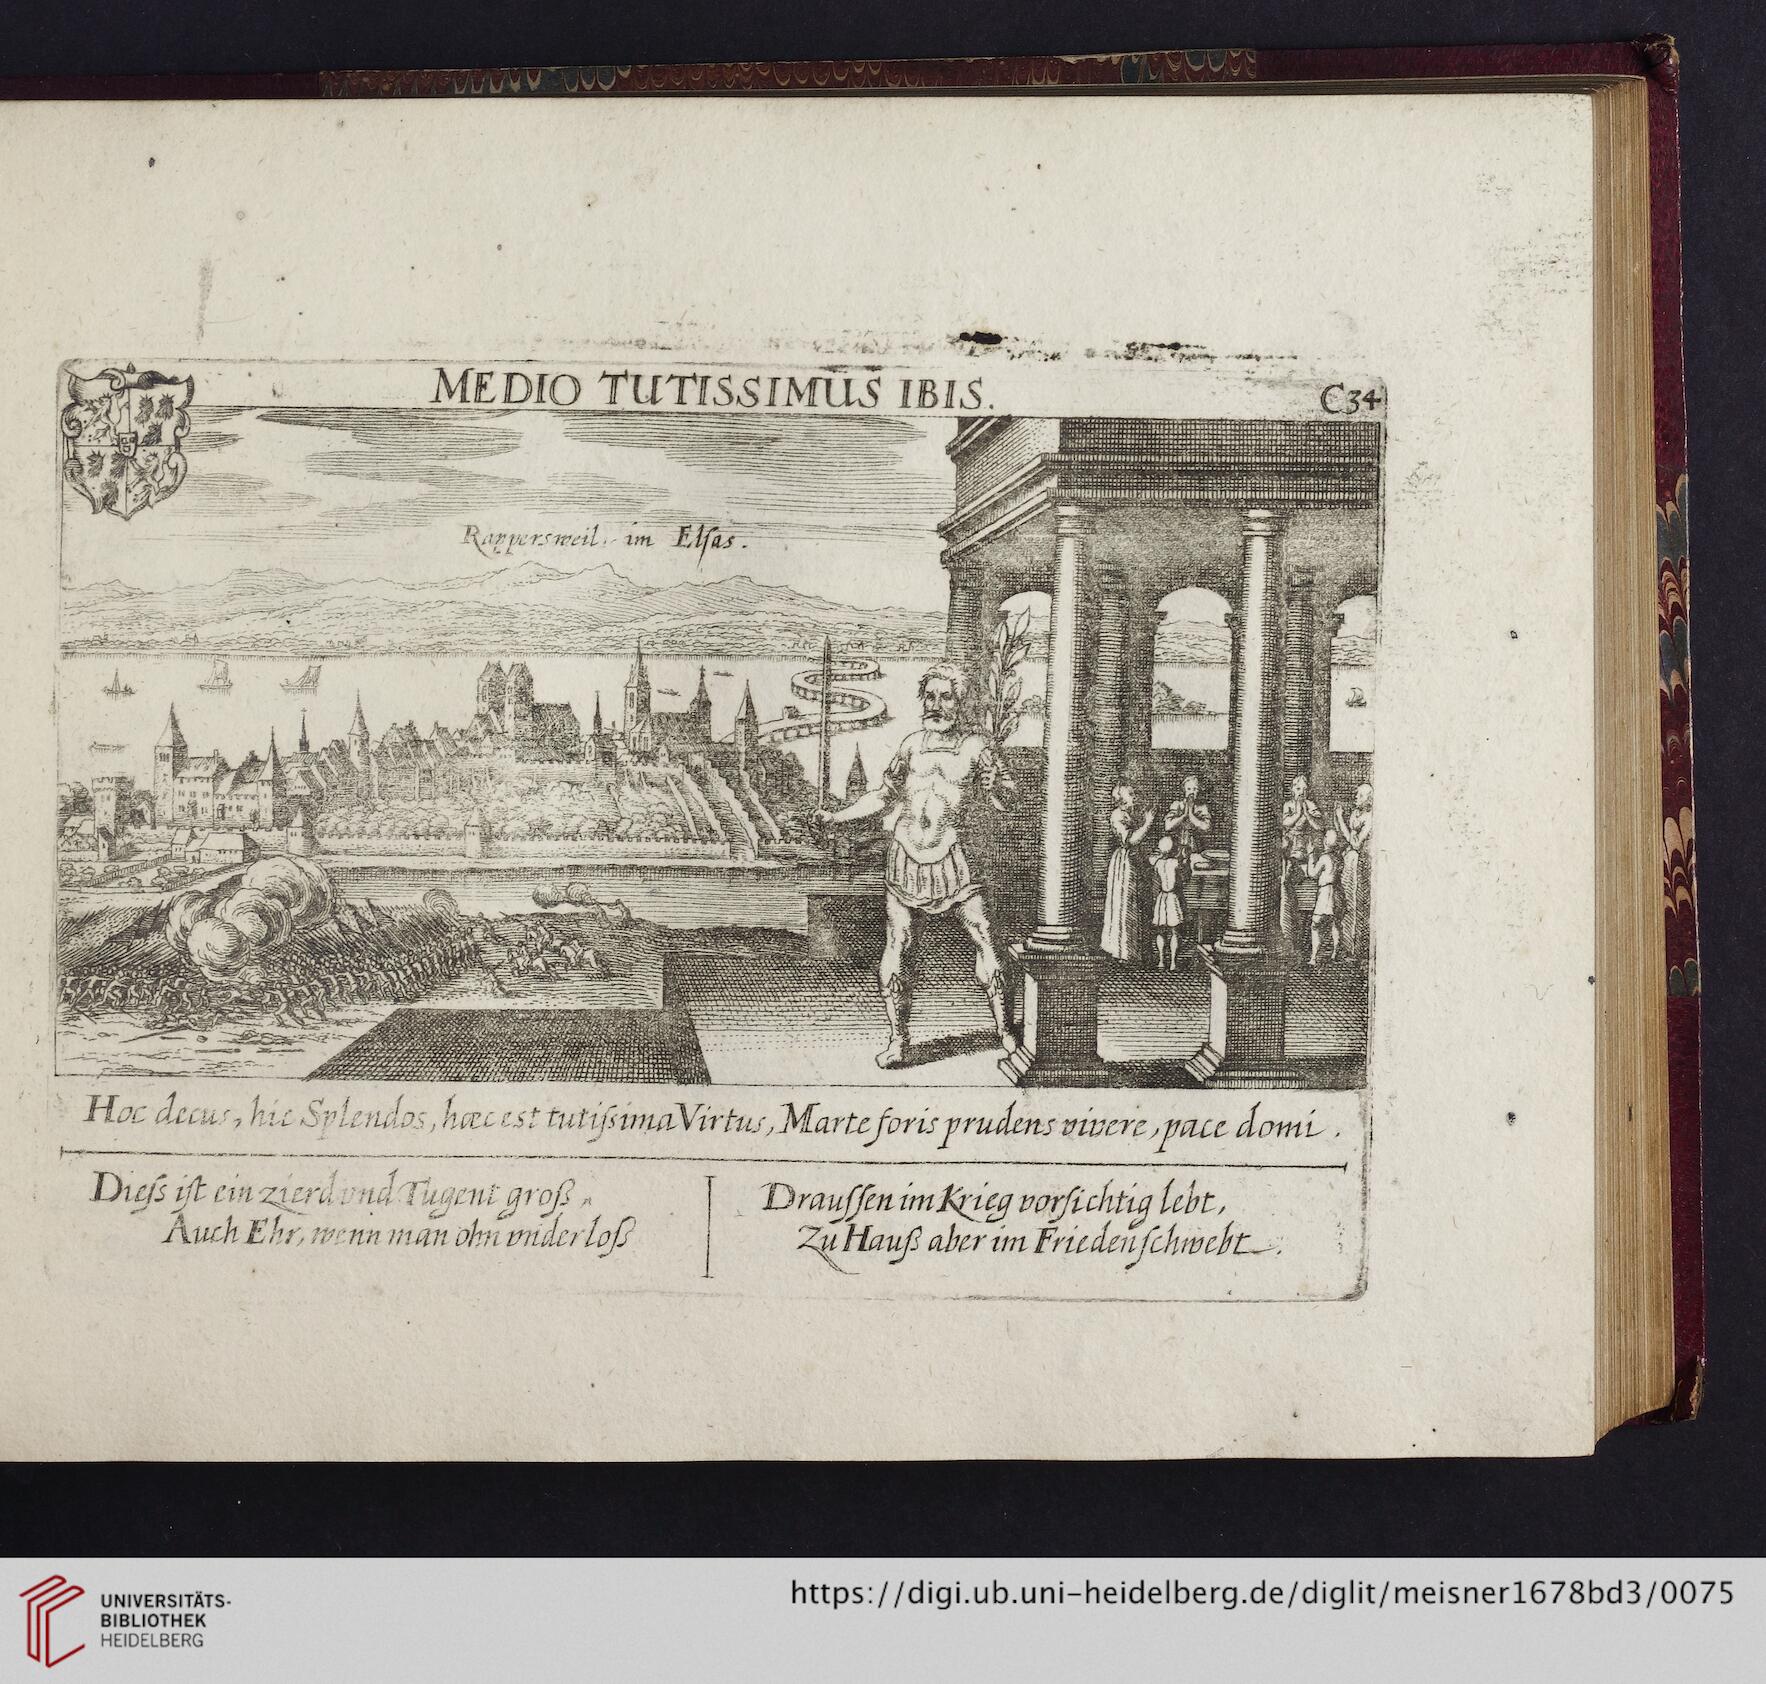 MEDIO TUTISSIMUS IBIS.
C34
Rappersweil. im Elſas.
Hoc decus, hic Splendos, hæc est tutiſsima Virtus, Marte foris prudens vivere, pace domi.
Dieſs iſt ein zierd vnd Tugent groß,
Auch Ehr, wenn man ohn vnderloß
Drauſſen im Krieg vorſichtig lebt,
Zu Hauß aber im Frieden ſchwebt.
UNIVERSITÄTS-
BIBLIOTHEK
HEIDELBERG
https://digi.ub.uni-heidelberg.de/diglit/meisner1678bd3/0075